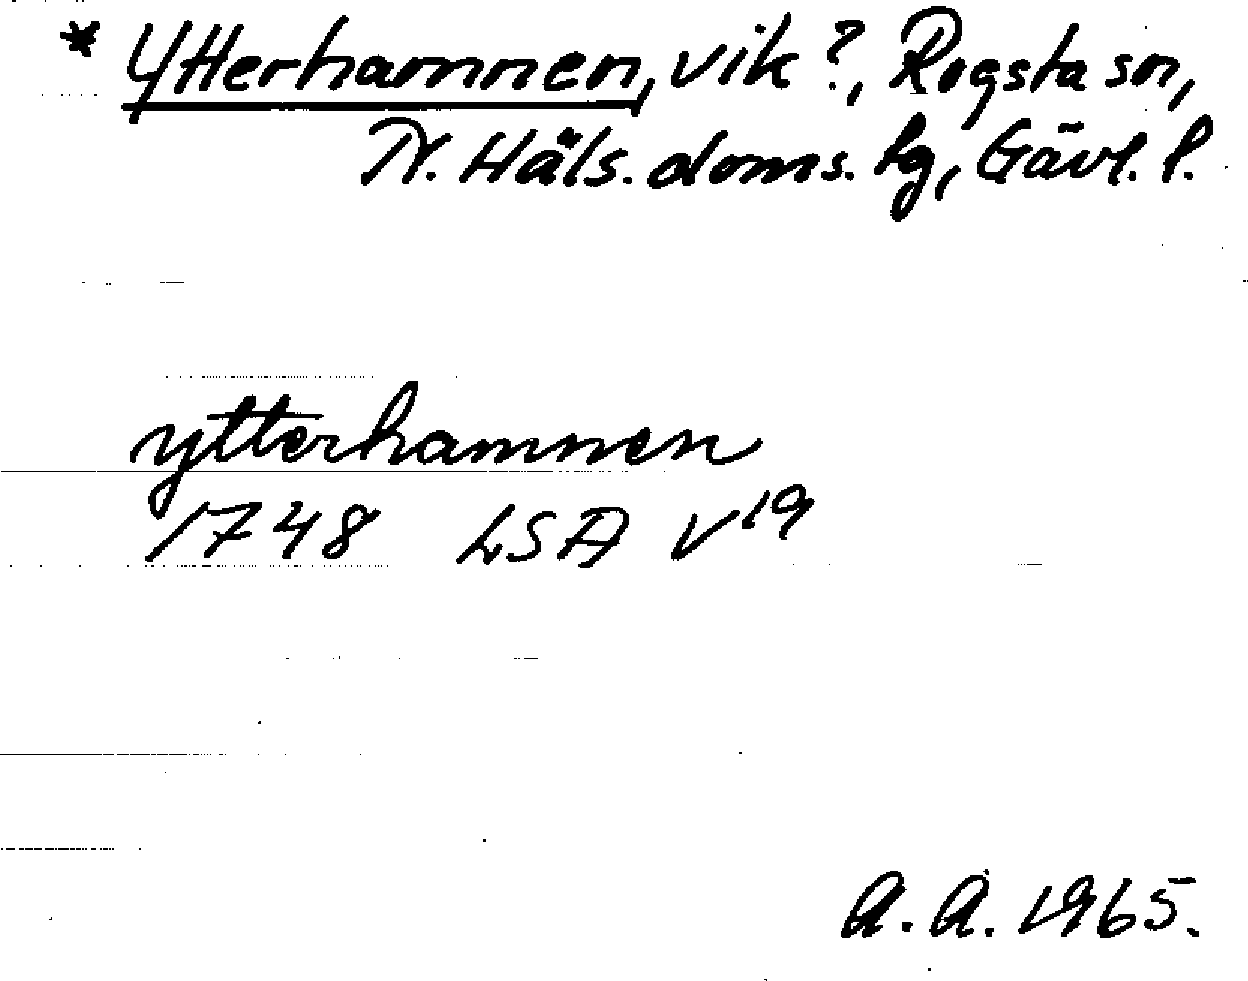 * Ytterhamnen, vik?, Rogsta sn,
N. Häls. doms. lg, Gävl. l.
ytterhamnen
1748 LSA V¹⁹
A.A. 1965.